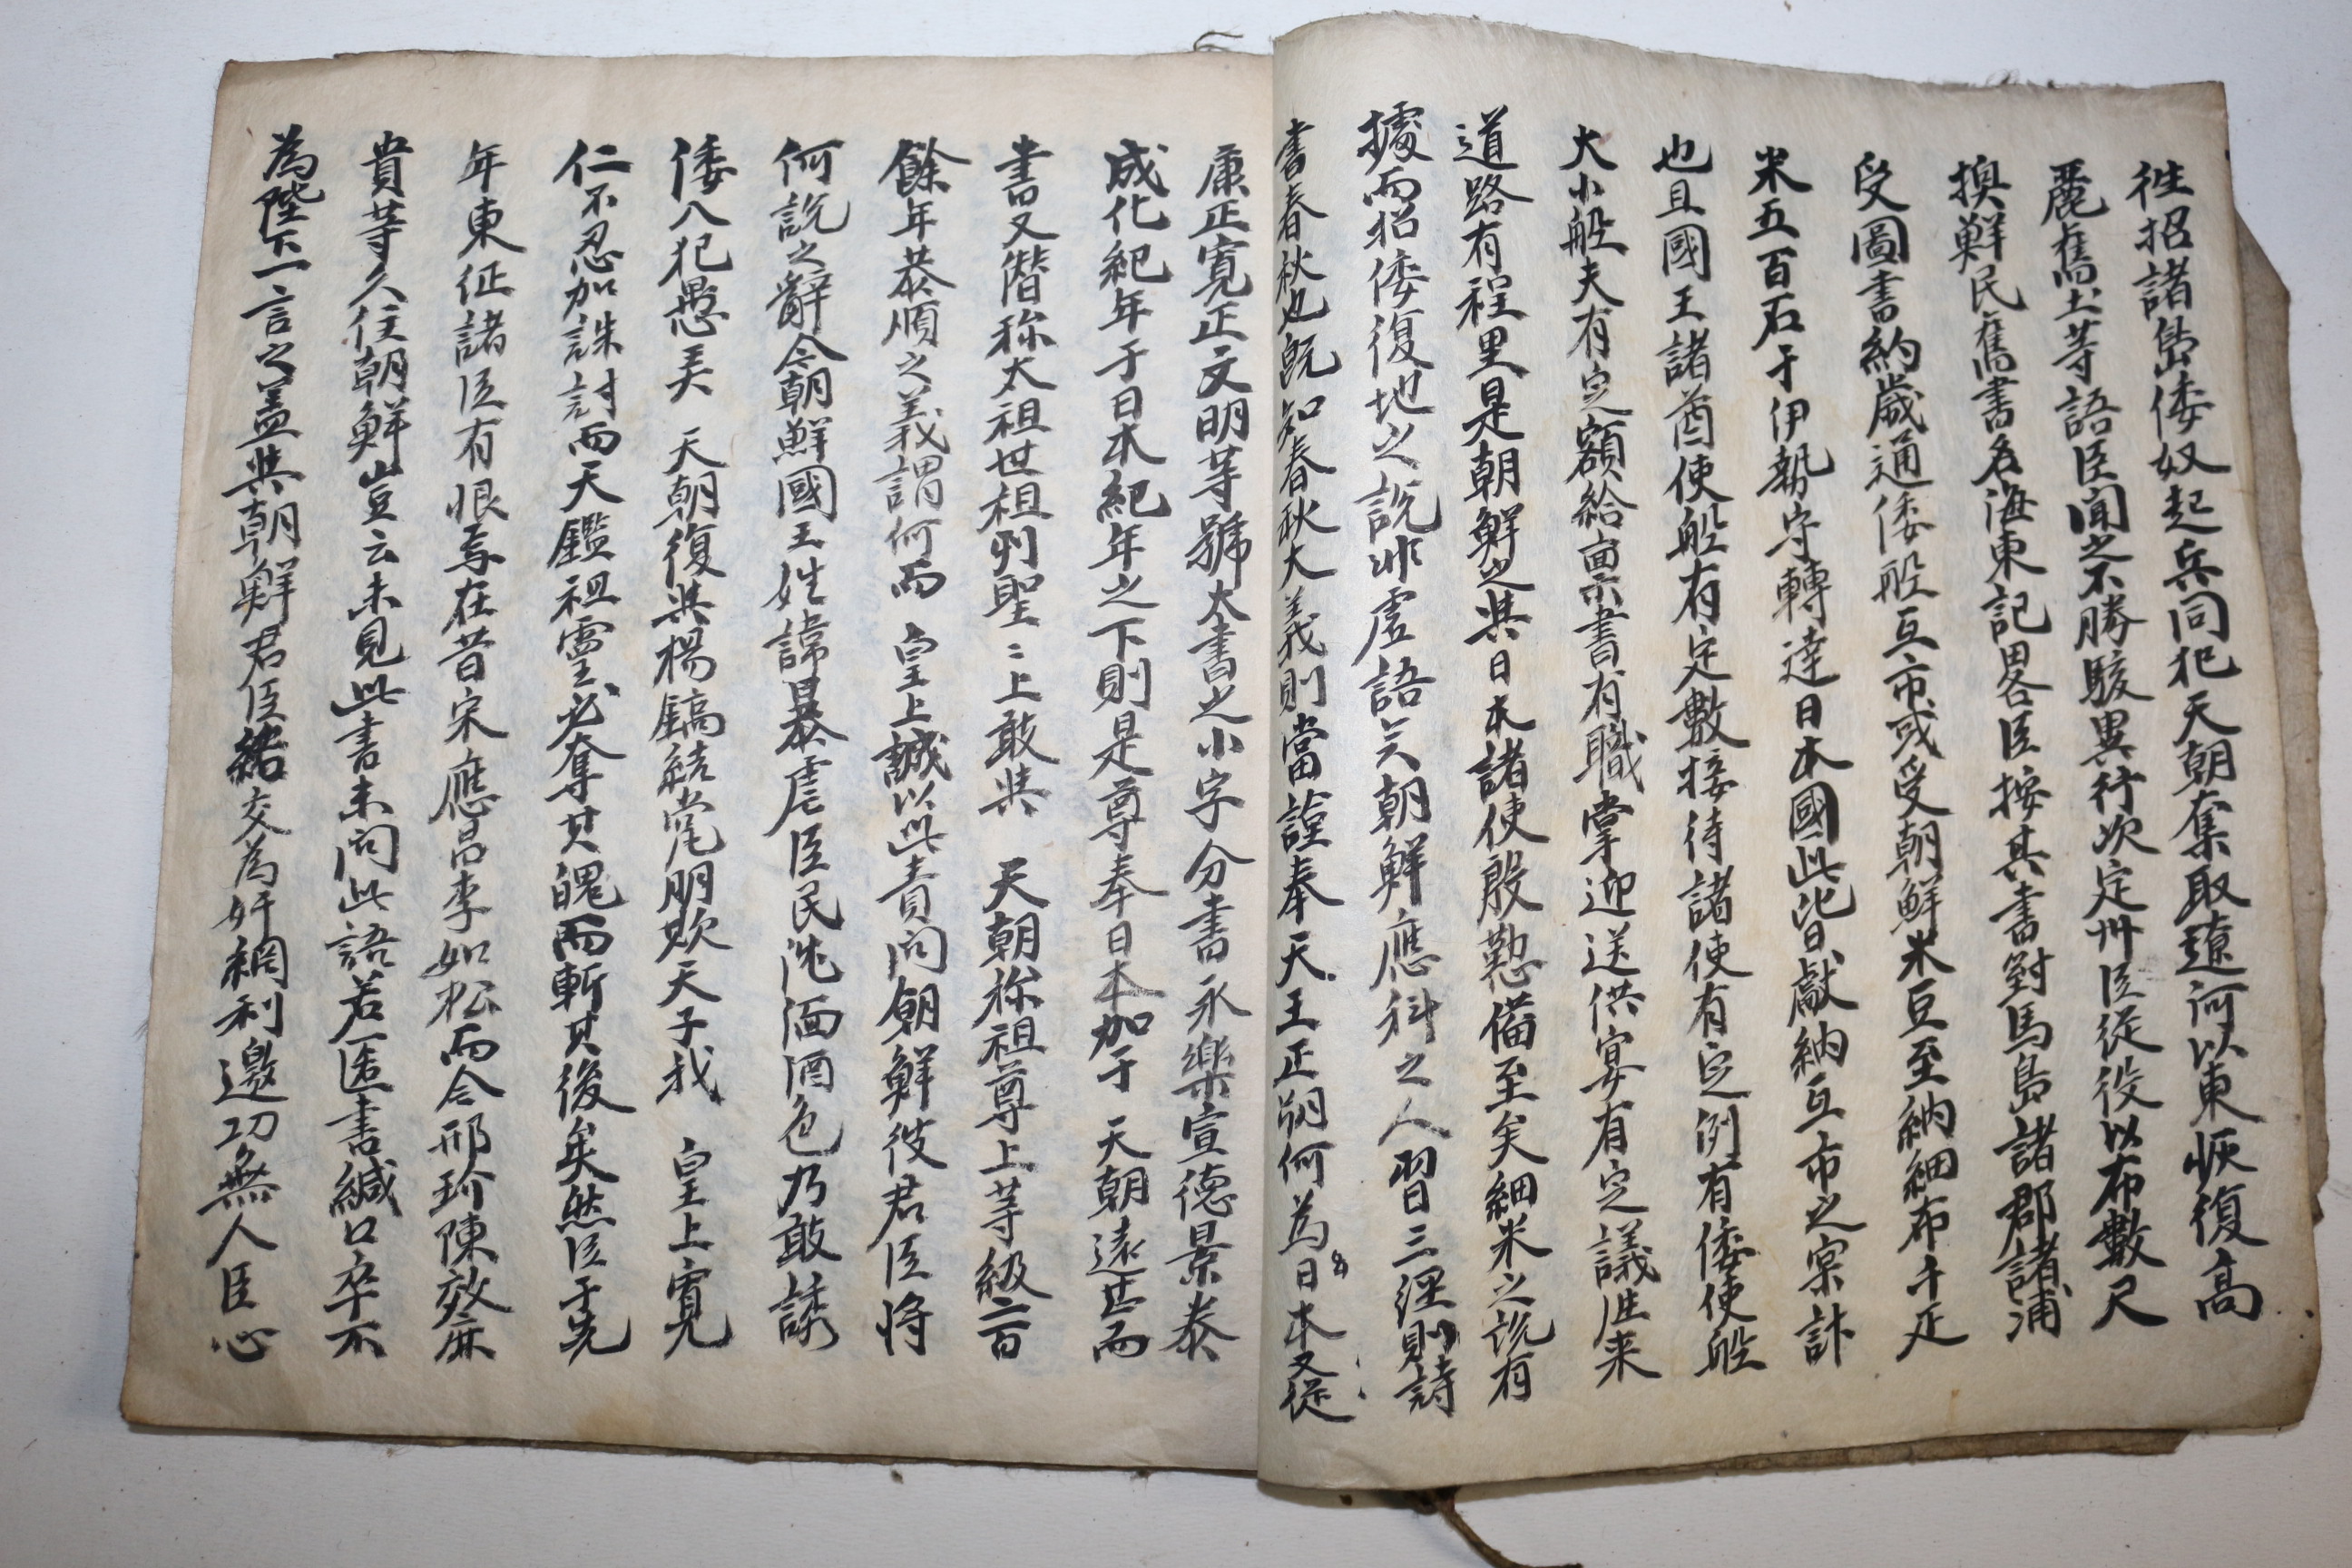 徃招諸島倭奴起兵同犯天朝奪取遼河以東恢復高
麗舊土等語臣聞之不勝駭異行次定州臣従役以布數尺
換鮮民舊書名海東記畧臣按其書對馬島諸郡諸浦
受圖書約歲通倭舩互市或受朝鮮米豆至納細布千疋
米五百石于伊勢守轉達日本國此皆獻納互市之案計
也且國王諸酋使舩有定數接待諸使有定例有倭使舩
大小舩夫有定額給稟書有職掌迎送供宴有定議徃来
道路有程里是朝鮮之與日本諸使殷懃備至矣細米之說有
據而招倭復地之說非虛語矣朝鮮應科之人習三經則詩
書春秋也既知春秋大義則當謹奉天王正朔何為日本又從
康正寬正文明等號大書之小字分書永樂宣德景泰
成化紀年于日本紀年之下則是尊奉日本加于 天朝遠甚而
書又僣称太祖世祖列聖〻上敢與 天朝称祖尊上等級二百
餘年恭順之義謂何而 皇上誠以此責問朝鮮彼君臣将
何說之辭今朝鮮國王姓諱暴虐臣民沈湎酒色乃敢誘
倭入犯愚弄 天朝復與楊鎬結党朋欺天子我 皇上寬
仁不忍加誅討而天鑑祖靈必奪其魄而斬其後矣然臣于先
年東征諸臣有恨焉在昔宋應昌李如松而今邢玠陳效麻
貴等久住朝鮮豈云未見此書未問此語若匿書緘口卒不
為陛下一言之盖與朝鮮君臣結交為奸網利邀功無人臣心